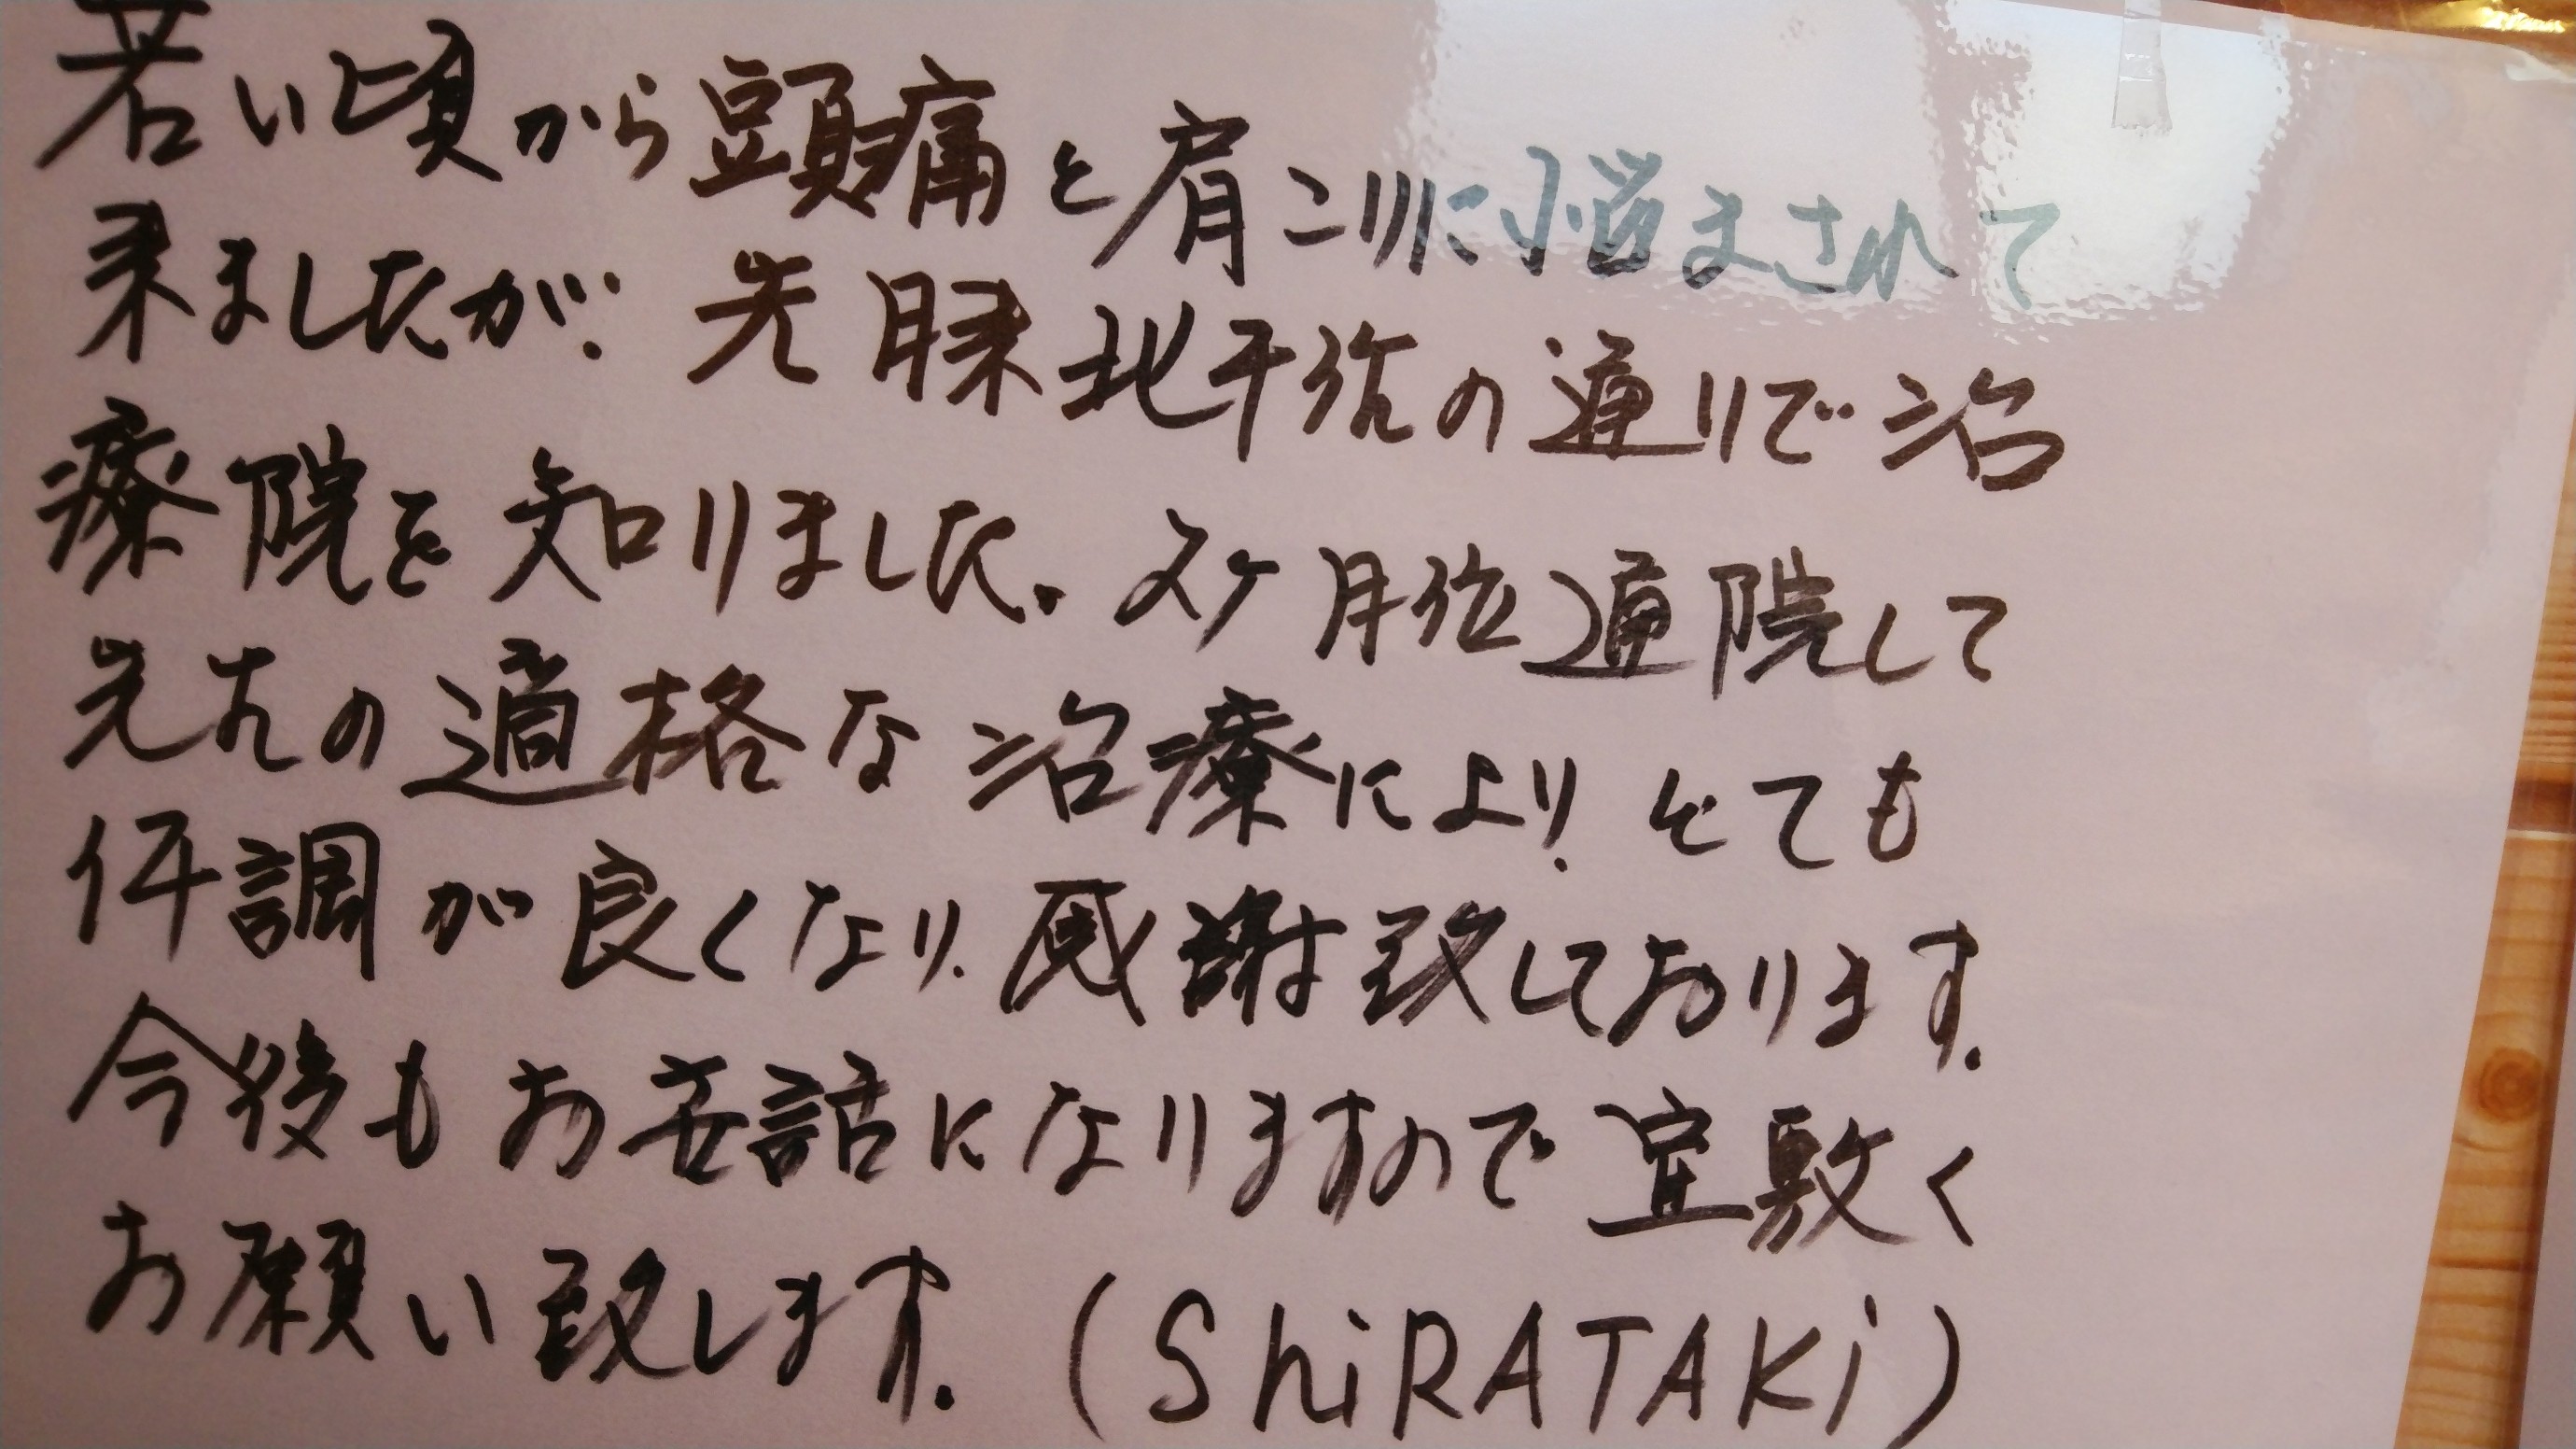 若い頃から頭痛と肩こりに悩まされて
来ましたが、先月末北千住の通りで治
療院を知りました。2ヶ月位通院して
先方の適格な治療により、とても
体調が良くなり、感謝致しております。
今後もお世話になりますので宜敷く
お願い致します。(ShiRATAKi)